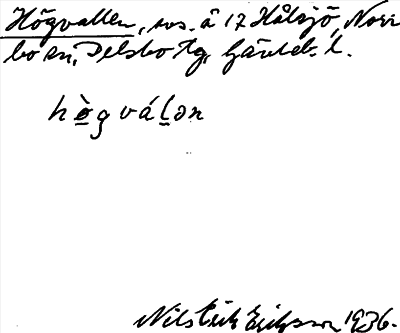 Högvallen, ros. å 17 Hålsjö, Norr
bo sn, Delsbo tg, Gävleb. l.
hò̲gváḷən
Nils Erik Eriksson 1936.